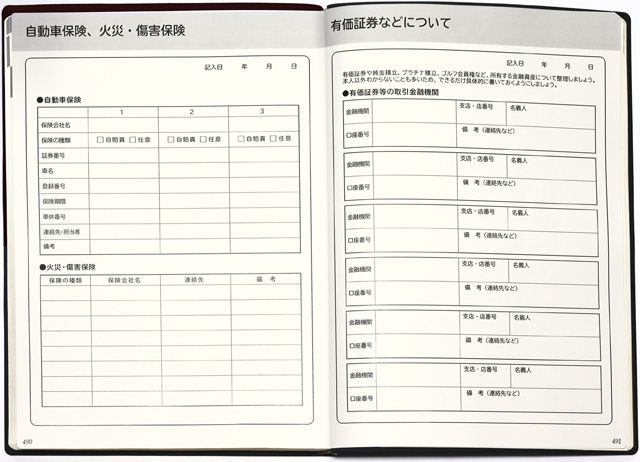 自動車保険、火災・傷害保険
記入日　年　月　日
●自動車保険
1　2　3
保険会社名
保険の種類　□自賠責 □任意　□自賠責 □任意　□自賠責 □任意
証券番号
車名
登録番号
保険期間
車体番号
連絡先・担当者
備考
●火災・傷害保険
保険の種類　保険会社名　連絡先　備　考
490
有価証券などについて
記入日　年　月　日
有価証券や純金積立、プラチナ積立、ゴルフ会員権など、所有する金融資産について整理しましょう。
本人以外わからないことも多いため、できるだけ具体的に書いておくようにしましょう。
●有価証券等の取引金融機関
金融機関　支店・店番号　名義人
口座番号　備　考（連絡先など）
金融機関　支店・店番号　名義人
口座番号　備　考（連絡先など）
金融機関　支店・店番号　名義人
口座番号　備　考（連絡先など）
金融機関　支店・店番号　名義人
口座番号　備　考（連絡先など）
金融機関　支店・店番号　名義人
口座番号　備　考（連絡先など）
金融機関　支店・店番号　名義人
口座番号　備　考（連絡先など）
491